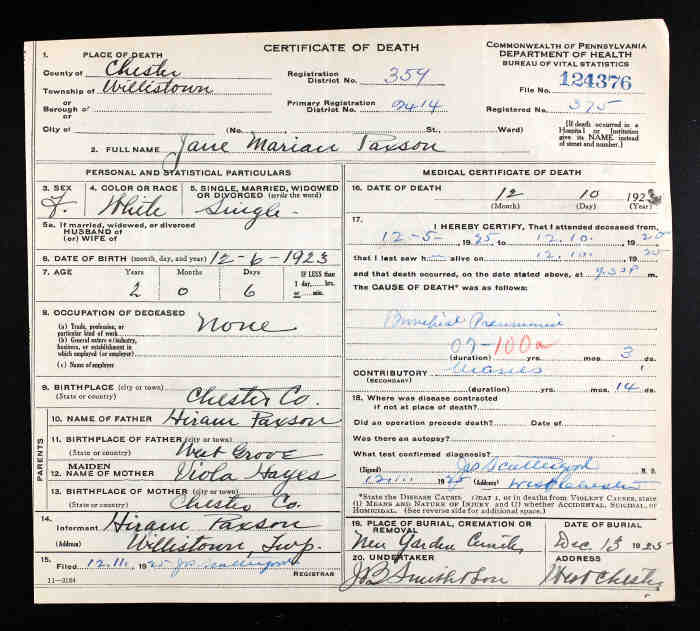 CERTIFICATE OF DEATH
COMMONWEALTH OF PENNSYLVANIA
DEPARTMENT OF HEALTH
BUREAU OF VITAL STATISTICS
1. PLACE OF DEATH
County of Chester
Township of Willistown
or
Borough of
or
City of (No. St., Ward)
Registration District No. 359
Primary Registration District No. 2414
File No. 124376
Registered No. 375
[If death occurred in a Hospital or Institution give its NAME instead of street and number.]
2. FULL NAME Jane Marian Paxson
PERSONAL AND STATISTICAL PARTICULARS
3. SEX F.
4. COLOR OR RACE White
5. SINGLE, MARRIED, WIDOWED OR DIVORCED (write the word) Single
5a. If married, widowed, or divorced
HUSBAND of
(or) WIFE of
6. DATE OF BIRTH (month, day, and year) 12-6-1923
7. AGE Years Months Days IF LESS than
2 0 6 1 day, hrs.
or min.
8. OCCUPATION OF DECEASED None
(a) Trade, profession, or particular kind of work
(b) General nature of industry, business, or establishment in which employed (or employer)
(c) Name of employer
9. BIRTHPLACE (city or town)
(State or country) Chester Co.
PARENTS
10. NAME OF FATHER Hiram Paxson
11. BIRTHPLACE OF FATHER (city or town)
(State or country) West Grove
12. MAIDEN NAME OF MOTHER Viola Hayes
13. BIRTHPLACE OF MOTHER (city or town)
(State or country) Chester Co.
14. Informant Hiram Paxson
(Address) Willistown, Twp.
15. Filed 12.11, 1925
REGISTRAR
11-3184
MEDICAL CERTIFICATE OF DEATH
16. DATE OF DEATH 12 10 192
(Month) (Day) (Year)
17. I HEREBY CERTIFY, That I attended deceased from
12-5-, 1925 to 12.10., 1925
that I last saw h alive on 12.10., 1925
and that death occurred, on the date stated above, at m.
The CAUSE OF DEATH* was as follows:
Bronchial Pneumonia
07-100a
(duration) yrs. mos. 3 ds.
CONTRIBUTORY Measles
(SECONDARY)
(duration) yrs. mos. 14 ds.
18. Where was disease contracted
if not at place of death?
Did an operation precede death? Date of
Was there an autopsy?
What test confirmed diagnosis?
(Signed) Jos Scattergood M. D.
12.11, 1925 (Address) West Chester
*State the DISEASE CAUSING DEATH, or in deaths from VIOLENT CAUSES, state (1) MEANS AND NATURE OF INJURY and (2) whether ACCIDENTAL, SUICIDAL, or HOMICIDAL. (See reverse side for additional space.)
19. PLACE OF BURIAL, CREMATION OR REMOVAL DATE OF BURIAL
New Garden Dec. 13 1925
20. UNDERTAKER ADDRESS
J.B. Smith & Son West Chester